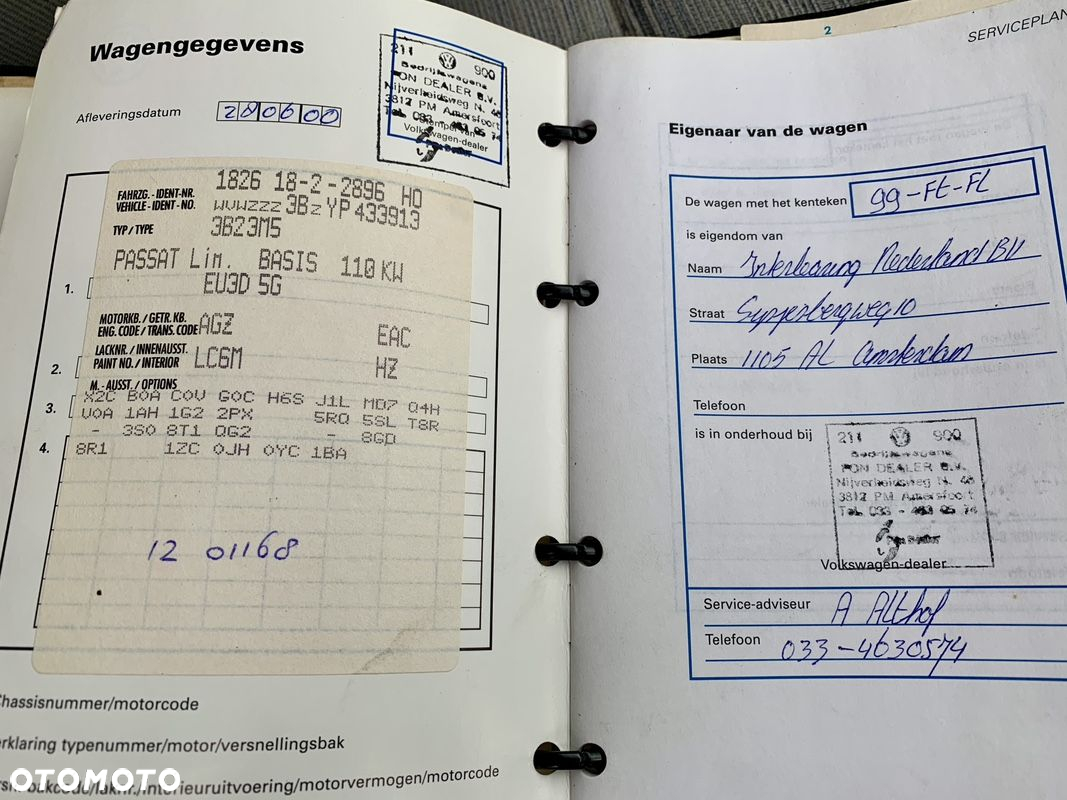 Wagengegevens
Afleveringsdatum 280600
211 900
Bedrijfswagens
PON DEALER B.V.
Nijverheidsweg N. 46
3812 PM Amersfoort
Tel. 033 - 463 05 74
Stempel van
Volkswagen-dealer
1826 18-2-2896 HO
FAHRZG.-IDENT-NR.
VEHICLE-IDENT-NO. WVWZZZ3BZYP433913
TYP/TYPE 3B23M5
PASSAT Lim. BASIS 110 KW
EU3D 5G
1.
MOTORKB./GETR.KB.
ENG.CODE/TRANS.CODE AGZ EAC
LACKNR./INNENAUSST.
PAINT NO./INTERIOR LC6M HZ
2.
M.-AUSST./OPTIONS
X2C B0A C0V G0C H6S J1L MD7 Q4H
3.
U0A 1AH 1G2 2PX 5RQ 5SL T8R
- 3S0 8T1 QG2 - 8GD
4.
8R1 1ZC 0JH 0YC 1BA
12 01168
Chassisnummer/motorcode
typenummer/motor/versnellingsbak
/interieuruitvoering/motorvermogen/motorcode
OTOMOTO
2
SERVICEPLAN
Eigenaar van de wagen
De wagen met het kenteken 99-Ft-FL
is eigendom van
Naam Interleasing Nederland BV
Straat
Plaats 1105 AL Amsterdam
Telefoon
is in onderhoud bij
211 900
Bedrijfswagens
PON DEALER B.V.
Nijverheidsweg N. 46
3812 PM Amersfoort
Tel. 033 - 463 05 74
Volkswagen-dealer
Service-adviseur A Althof
Telefoon 033-4630574